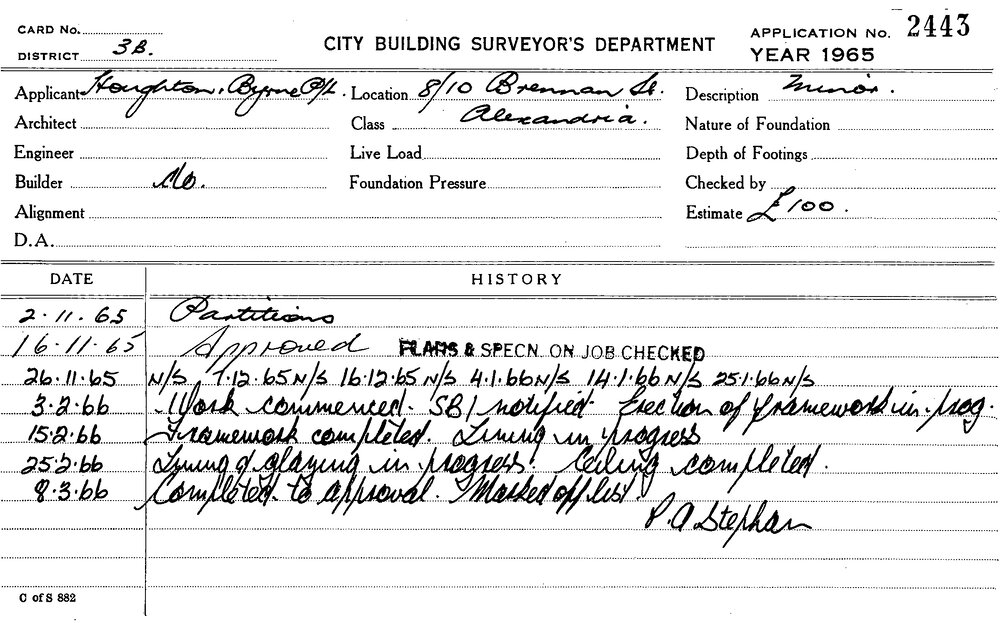 CARD No. CITY BUILDING SURVEYOR'S DEPARTMENT APPLICATION No. 2443
DISTRICT 3B. YEAR 1965
Applicant Houghton. Byrne P/L. Location 8/10 Brennan St. Description Minor.
Architect Class Alexandria. Nature of Foundation
Engineer Live Load Depth of Footings
Builder do. Foundation Pressure Checked by
Alignment Estimate £100.
D.A.
DATE HISTORY
2.11.65 Partitions
16.11.65 Approved PLANS & SPECN. ON JOB CHECKED
26.11.65 N/S 7.12.65 N/S 16.12.65 N/S 4.1.66 N/S 14.1.66 N/S 25.1.66 N/S
3.2.66 Work commenced. SBI notified. Erection of framework in prog.
15.2.66 Framework completed. Lining in progress
25.2.66 Lining & glazing in progress. Ceiling completed.
8.3.66 Completed to approval. Marked off list
P. A Stephan
C of S 882